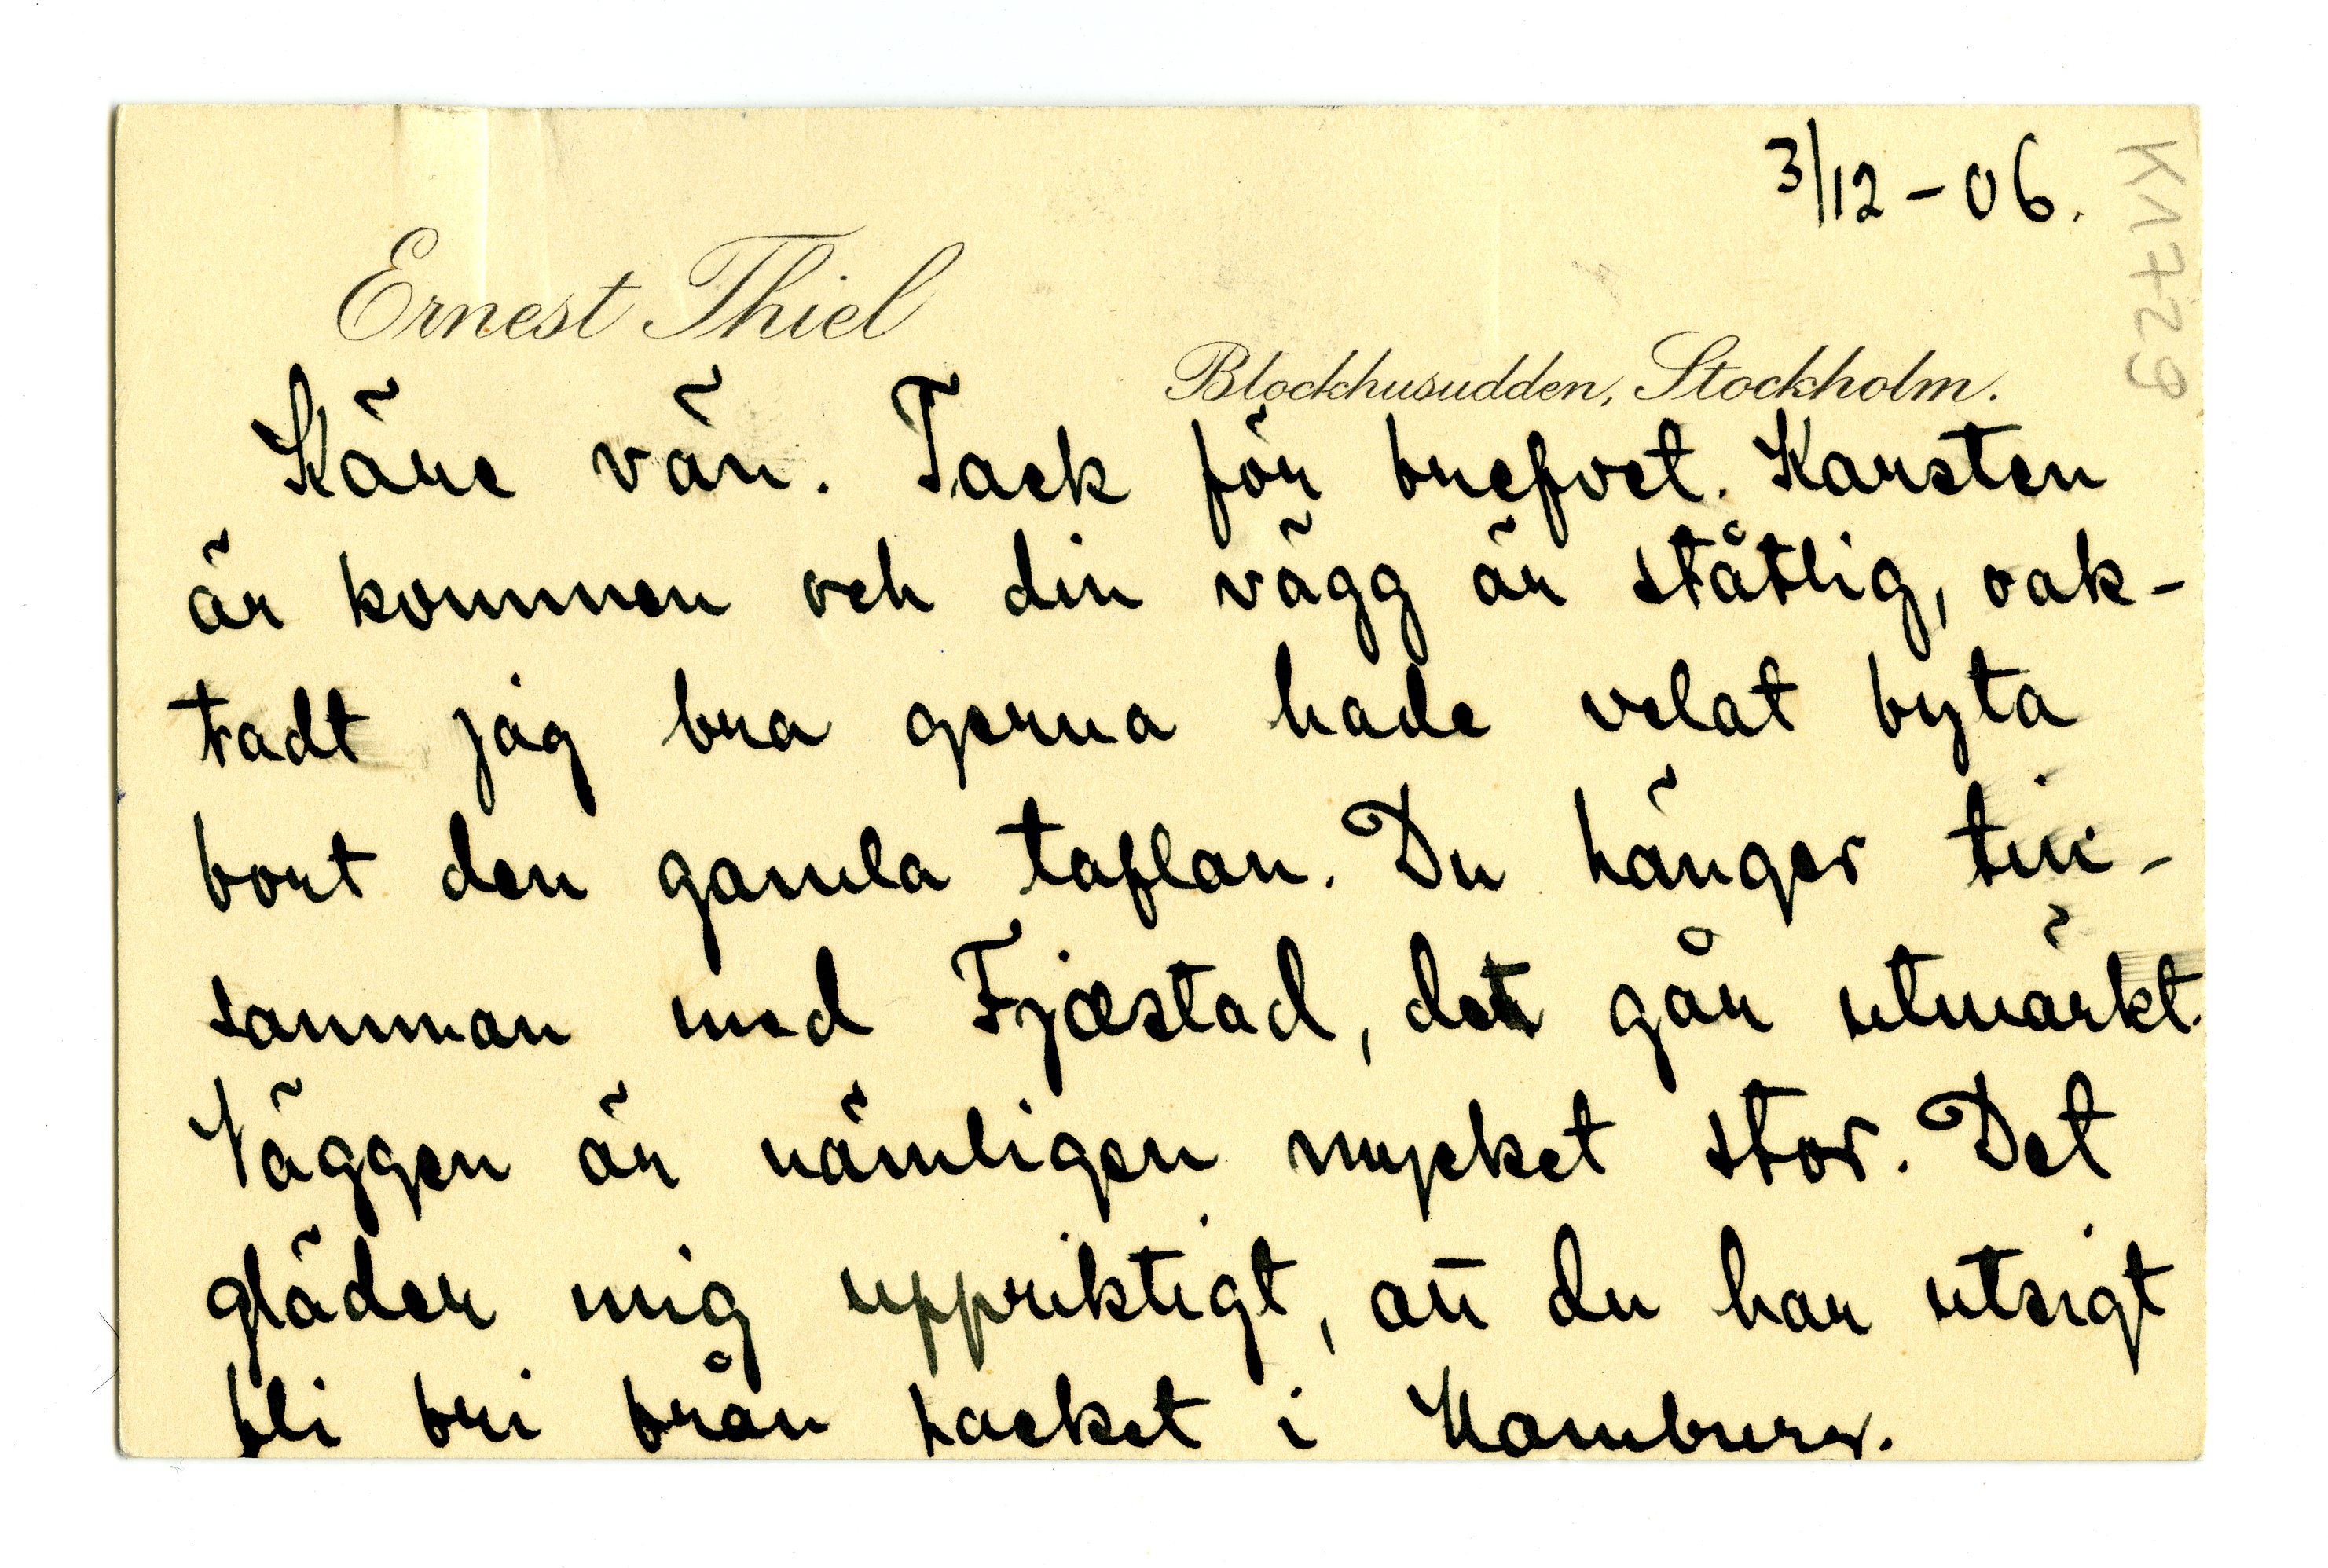 3/12 - 06.
K1729
Ernest Thiel
Blockhusudden, Stockholm.
Käre vän. Tack för brefvet. Karsten
är kommen och din vägg är ståtlig, oak-
tadt jag bra gerna hade velat byta
bort den gamla taflan. Du hänger till-
samman med Fjæstad, det går utmärkt.
Väggen är nämligen mycket stor. Det
gläder mig uppriktigt, att du har utsigt
bli fri från packet i Hamburg.